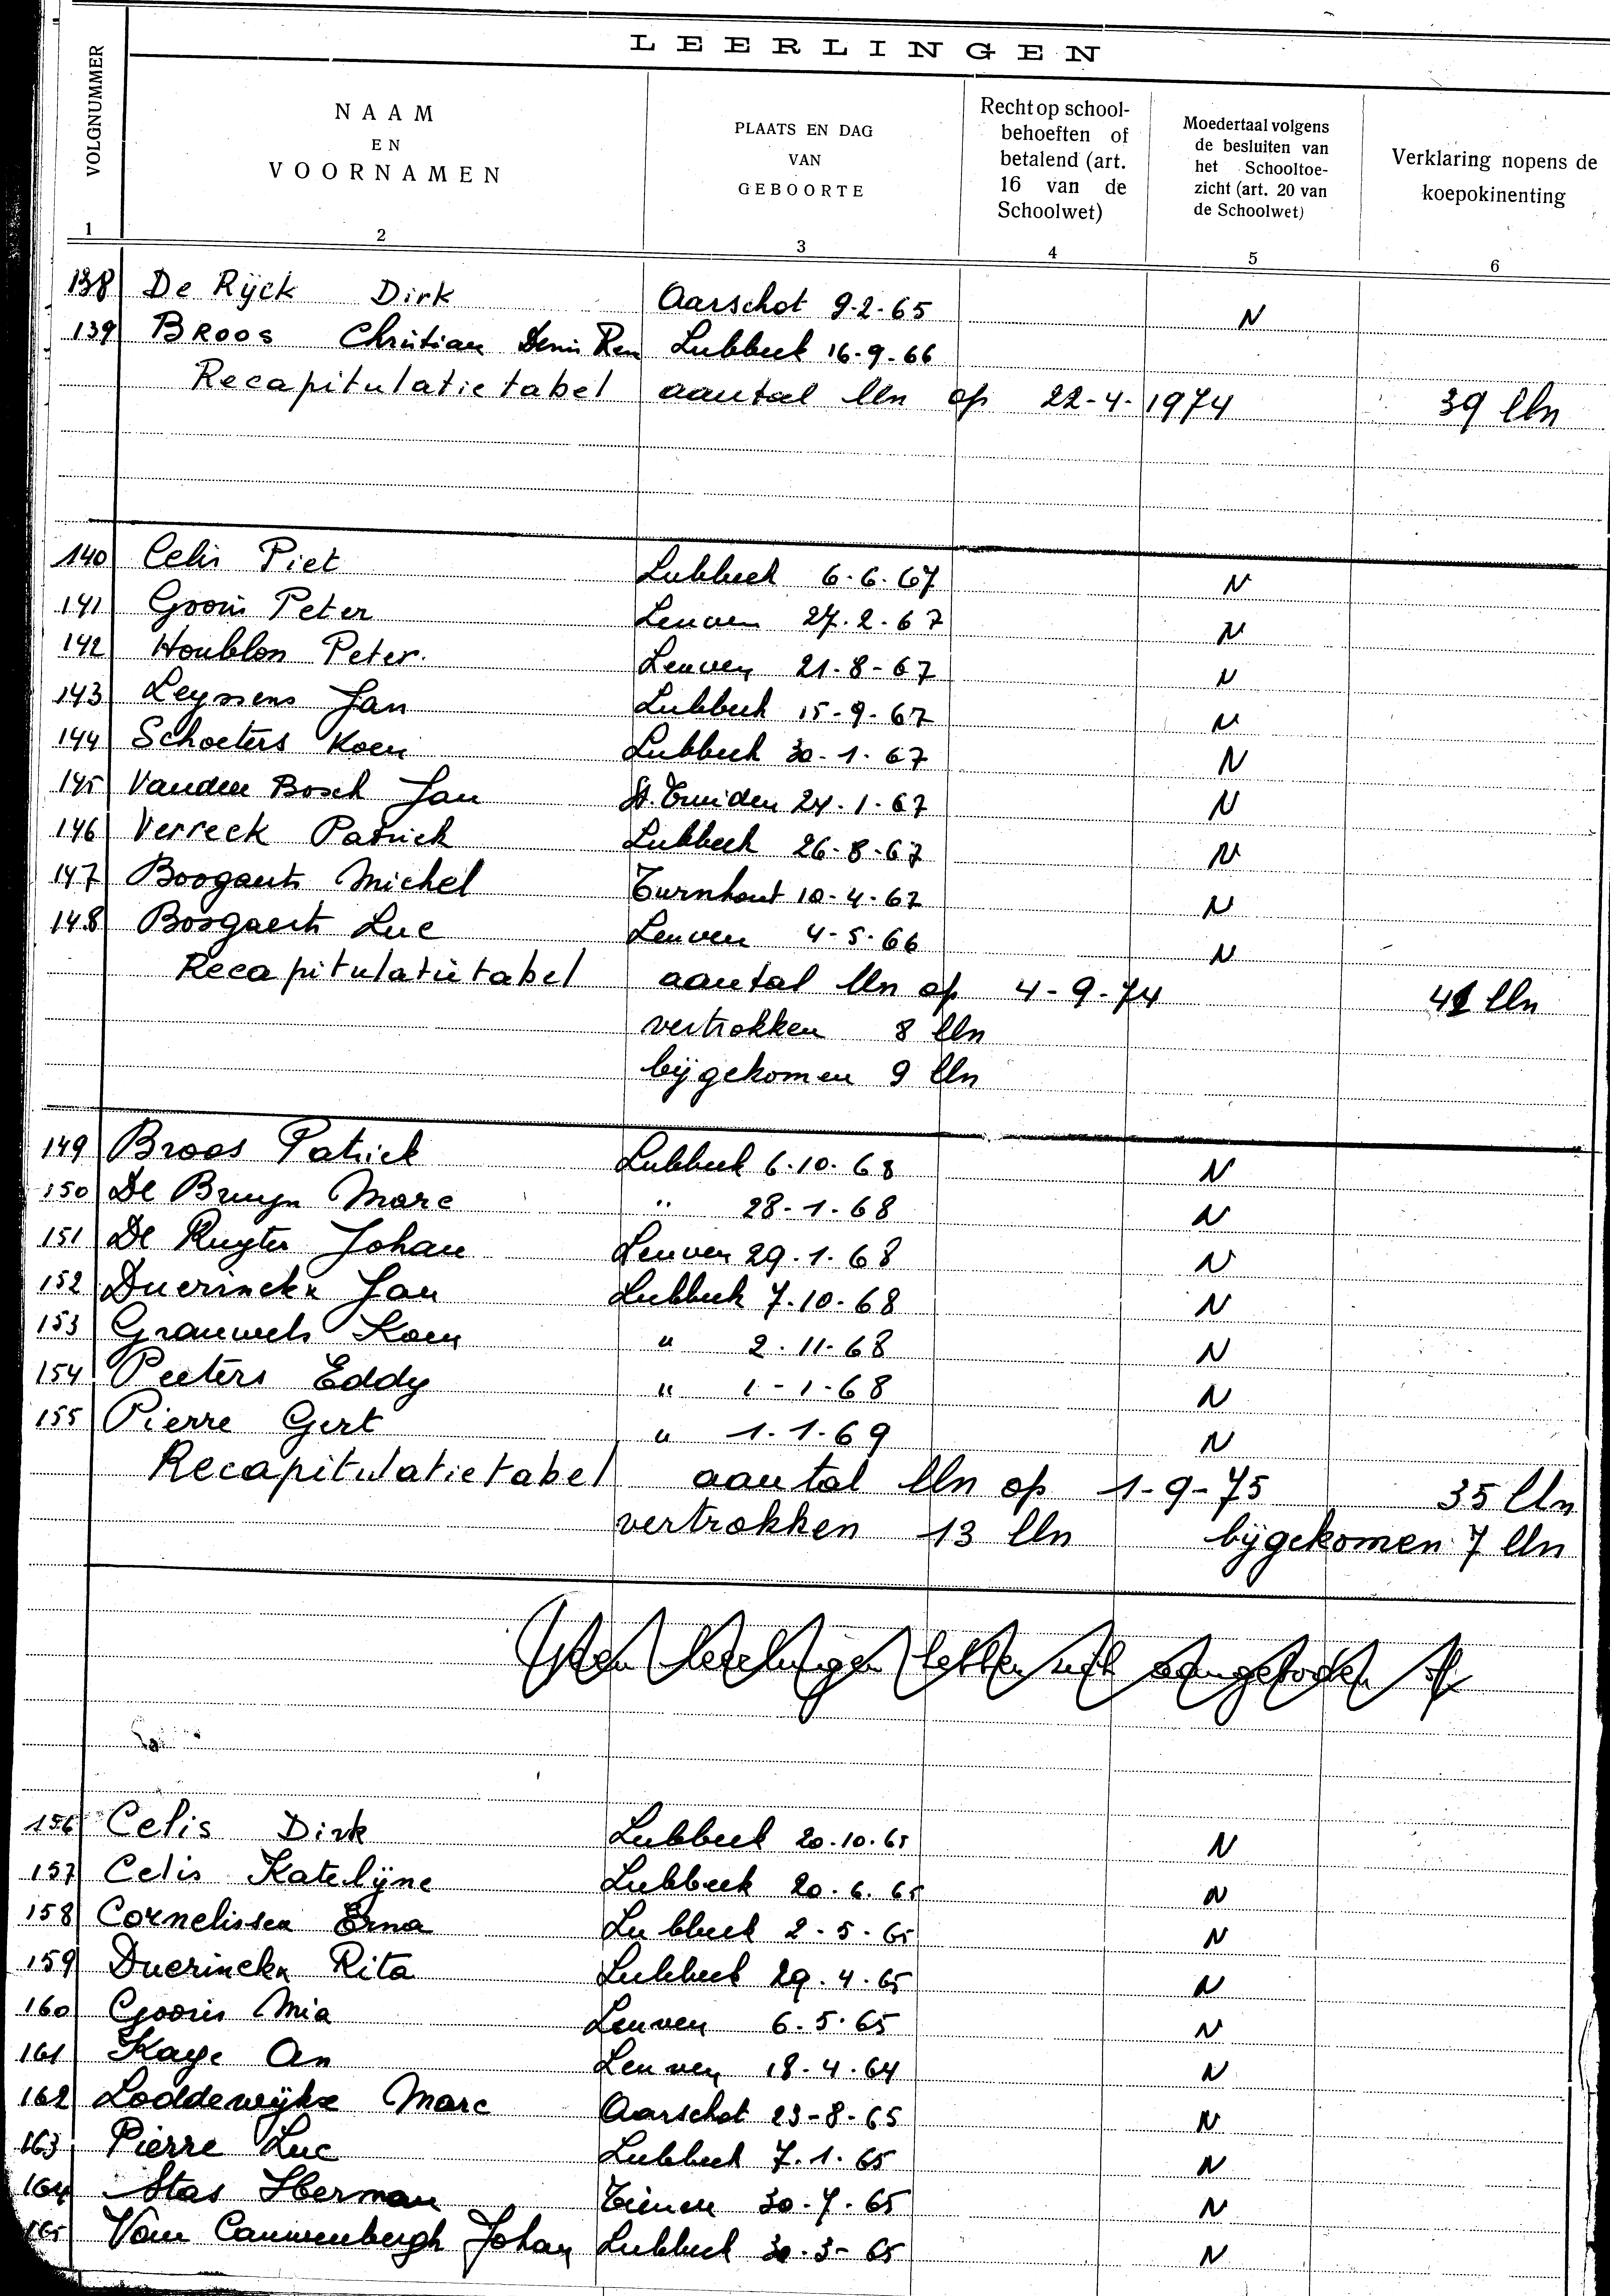 LEERLINGEN
VOLGNUMMER
NAAM
EN
VOORNAMEN
PLAATS EN DAG
VAN
GEBOORTE
Recht op school-
behoeften of
betalend (art.
16 van de
Schoolwet)
Moedertaal volgens
de besluiten van
het Schooltoe-
zicht (art. 20 van
de Schoolwet)
Verklaring nopens de
koepokinenting
1 2 3 4 5 6
138 De Rijck Dirk Aarschot 9-2-65 N
139 BROOS Christian Denis Ren Lubbeek 16-9-66
Recapitulatietabel aantal lln op 22-4-1974 39 lln
140 Celis Piet Lubbeek 6-6-67 N
141 Gooris Peter Leuven 27.2.67 N
142 Houblon Peter. Leuven 21-8-67 N
143 Leyssens Jan Lubbeek 15-9-67 N
144 Schoeters Koen Lubbeek 30-1-67 N
145 Vanden Bosch Jan St. Truiden 24-1-67 N
146 Verreck Patrick Lubbeek 26-8-67 N
147 Boogaerts Michel Turnhout 10-4-67 N
148 Boogaerts Luc Leuven 4-5-66 N
Recapitulatietabel aantal lln op 4-9-74 41 lln
vertrokken 8 lln
bijgekomen 9 lln
149 Broos Patrick Lubbeek 6-10-68 N
150 De Bruyn Marc " 28-1-68 N
151 De Ruyter Johan Leuven 29-1-68 N
152 Duerinckx Jan Lubbeek 7-10-68 N
153 Grauwels Koen " 2-11-68 N
154 Peeters Eddy " 1-1-68 N
155 Pierre Gert " 1-1-69 N
Recapitulatietabel aantal lln op 1-9-75 35 lln
vertrokken 13 lln bijgekomen 7 lln
156 Celis Dirk Lubbeek 20-10-65 N
157 Celis Katelijne Lubbeek 20.6.65 N
158 Cornelissen Erna Lubbeek 2-5-65 N
159 Duerinckx Rita Lubbeek 29.4.65 N
160 Gooris Mia Leuven 6.5.65 N
161 Kaye An Leuven 18.4.64 N
162 Loddewijkx Marc Aarschot 23-8-65 N
163 Pierre Luc Lubbeek 7.1.65 N
164 Stas Herman Tienen 30-7-65 N
165 Van Cauwenbergh Johan Lubbeek 30-3-65 N